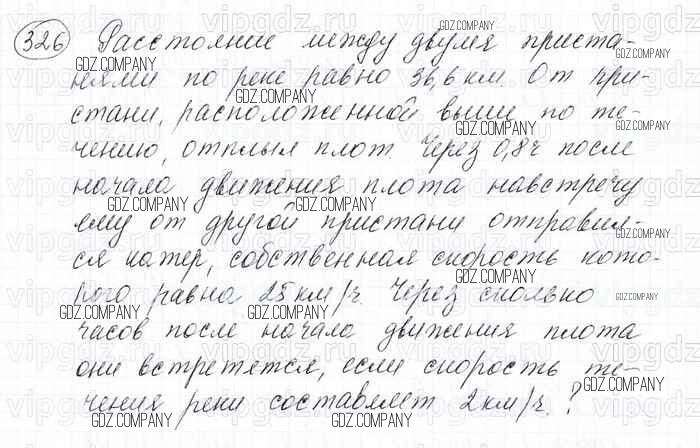 326 Расстояние между двумя приста-
нями по реке равно 36,6 км. От при-
стани, расположенной выше по те-
чению, отплыл плот. Через 0,8 ч после
начала движения плота навстречу
ему от другой пристани отправил-
ся катер, собственная скорость кото-
рого равна 25 км/ч. Через сколько
часов после начала движения плота
они встретятся, если скорость те-
чения реки составляет 2 км/ч.?